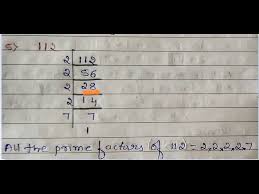 5) 112
2 | 112
2 | 56
2 | 28
2 | 14
7 | 7
1
All the prime factors of 112 = 2.2.2.2.7